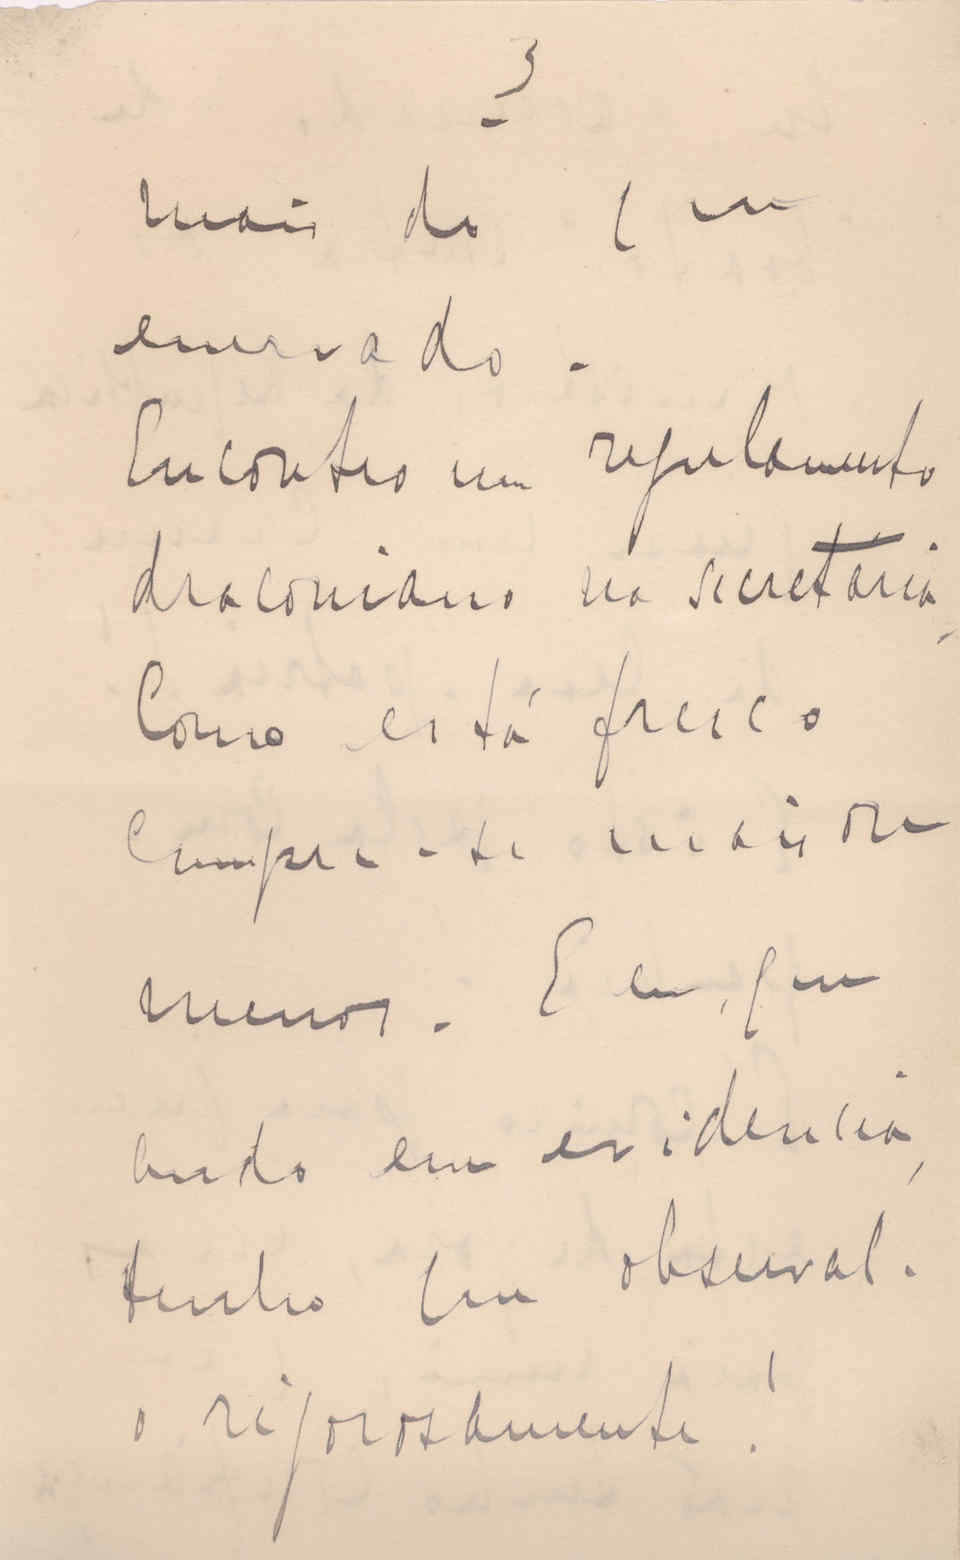 3
mais do que
enervado.
Encontro um regulamento
draconiano na secretária,
Como está fresco
cumpre-se mais ou
menos. E eu, que
ando em evidencia,
tenho que observal-
o rigorosamente!